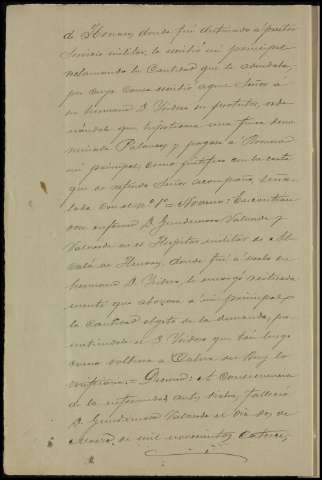 de Henares, donde fué destinado á prestar
servicio militar, le escribió mi principal
reclamando la cantidad que le adeudaba,
por cuya causa escribió aquel Señor á
su hermano D. Isidoro
que hipotecara una finca deno-
minada Palancar y pagara á
mi principal, como justifica con la carta
que de referido Señor acompaño, seña-
lada con el nº 1º = Noveno: Encontran-
dose enfermo D. Gundemaro Valverde y
Valverde en el Hospital militar de Al-
calá de Henares, donde fué á verlo su
hermano D. Isidoro, le encargó reiterada-
mente que abonara á mi principal
la cantidad objeto de la demanda, pro-
metiéndole el D. Isidoro que tan luego
como volviera á Calera de León lo
= Décimo: A consecuencia
de la enfermedad antes dicha, falleció
D. Gundemaro Valverde el día dos de
Marzo de mil novecientos catorce,